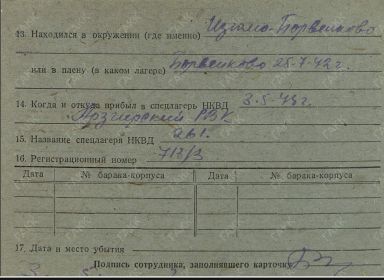 13. Находился в окружении (где именно) Изюмо-Барвенково
или в плену (в каком лагере) Барвенково 25-7-42г.
14. Когда и откуда прибыл в спецлагерь НКВД 3-5-43г.
РВК
15. Название спецлагеря НКВД 261.
16. Регистрационный номер 713/3
Дата № барака-корпуса Дата № барака-корпуса
17. Дата и место убытия
Подпись сотрудника, заполнявшего карточку